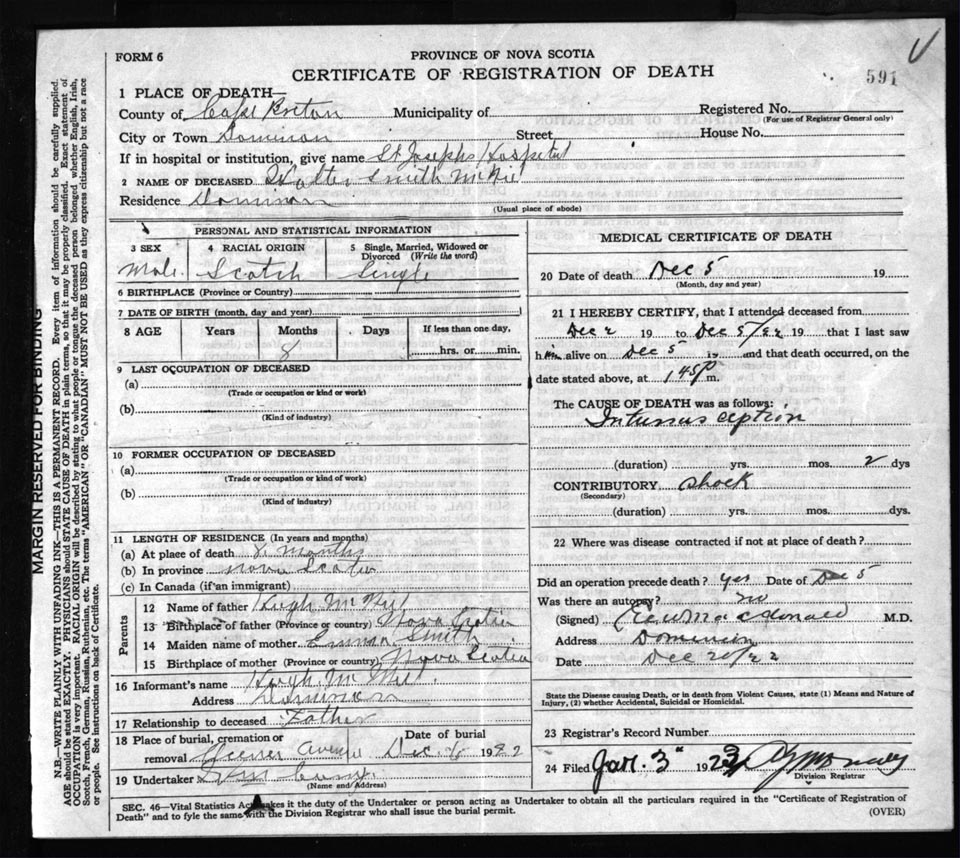 FORM 6
PROVINCE OF NOVA SCOTIA
CERTIFICATE OF REGISTRATION OF DEATH
591
1 PLACE OF DEATH—
County of Cape Breton Municipality of Registered No.
(For use of Registrar General only)
City or Town Dominion Street House No.
If in hospital or institution, give name St Josephs Hospital
2 NAME OF DECEASED Walter Smith
Residence Dominion
(Usual place of abode)
PERSONAL AND STATISTICAL INFORMATION
3 SEX 4 RACIAL ORIGIN 5 Single, Married, Widowed or Divorced (Write the word)
Male. Scotch Single
6 BIRTHPLACE (Province or Country)
7 DATE OF BIRTH (month, day and year)
8 AGE Years Months Days If less than one day,
8 hrs. or min.
9 LAST OCCUPATION OF DECEASED
(a)
(Trade or occupation or kind or work)
(b)
(Kind of industry)
10 FORMER OCCUPATION OF DECEASED
(a)
(Trade or occupation or kind of work)
(b)
(Kind of industry)
11 LENGTH OF RESIDENCE (In years and months)
(a) At place of death 8 Months
(b) In province Nova Scotia
(c) In Canada (if an immigrant)
Parents
12 Name of father Hugh
13 Birthplace of father (Province or country) Nova Scotia
14 Maiden name of mother Emma Smith
15 Birthplace of mother (Province or country) Nova Scotia
16 Informant's name Hugh
Address Dominion
17 Relationship to deceased Father
18 Place of burial, cremation or removal Date of burial
Avenue Dec 6 1922
19 Undertaker
(Name and Address)
MEDICAL CERTIFICATE OF DEATH
20 Date of death Dec 5 19
(Month, day and year)
21 I HEREBY CERTIFY, that I attended deceased from
Dec 2 19 to Dec 5/22 19 that I last saw
him alive on Dec 5 19 and that death occurred, on the
date stated above, at 1.45 p m.
The CAUSE OF DEATH was as follows:
Intussusception
(duration) yrs. mos. 2 dys
CONTRIBUTORY shock
(Secondary)
(duration) yrs. mos. dys.
22 Where was disease contracted if not at place of death?
Did an operation precede death? yes Date of Dec 5
Was there an autopsy? no
(Signed) Macdonald M.D.
Address Dominion
Date Dec 20/22
State the Disease causing Death, or in death from Violent Causes, state (1) Means and Nature of
Injury, (2) whether Accidental, Suicidal or Homicidal.
23 Registrar's Record Number
24 Filed Jan. 3 1923
Division Registrar
SEC. 46—Vital Statistics Act makes it the duty of the Undertaker or person acting as Undertaker to obtain all the particulars required in the "Certificate of Registration of
Death" and to fyle the same with the Division Registrar who shall issue the burial permit.
(OVER)
MARGIN RESERVED FOR BINDING
N.B.—WRITE PLAINLY WITH UNFADING INK—THIS IS A PERMANENT RECORD. Every item of information should be carefully supplied.
AGE should be stated EXACTLY. PHYSICIANS should STATE CAUSE OF DEATH in plain terms, so that it may be properly classified. Exact statement of
OCCUPATION is very important. RACIAL ORIGIN will be described by stating to what people or tongue the deceased person belonged, whether English, Irish,
Scotch, French, German, Russian, Ruthenian, etc. The terms "AMERICAN" OR "CANADIAN" MUST NOT BE USED as they express citizenship but not a race
or people. See instructions on back of Certificate.